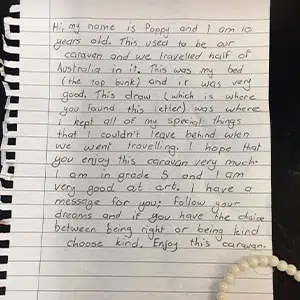 Hi, my name is Poppy and I am 10
years old. This used to be our
caravan and we travelled half of
Australia in it. This was my bed
(the top bunk) and it was very
good. This draw (which is where
you found this letter) was where
i kept all of my special things
that I couldn't leave behind when
we went travelling. I hope that
you enjoy this caravan very much.
I am in grade 5 and I am
very good at art. I have a
message for you: follow your
dreams and if you have the choice
between being right or being kind
choose kind. Enjoy this caravan.